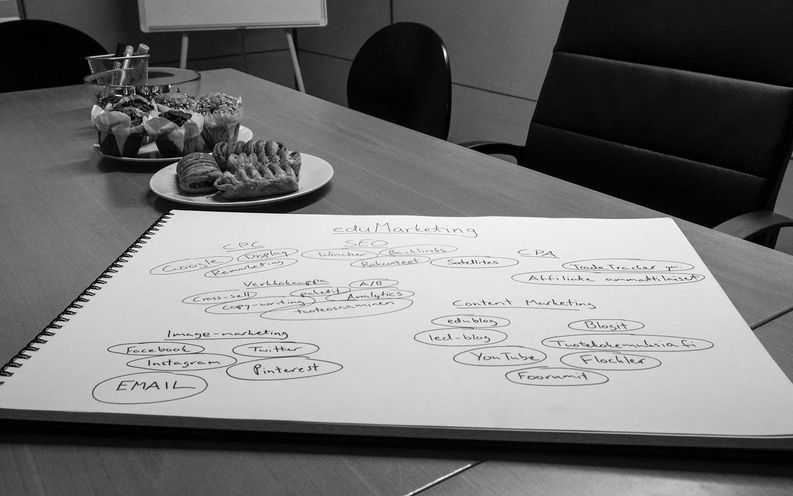 eduMarketing
CPC
Google Display
Remarketing
SEO
Wincher Backlinks
Rakenteet Satellites
CPA
TradeTracker
Affiliate ammattilaiset
Verkkokauppa A/B
Cross-sell paketit Analytics
copy-writing tuoteosaaminen
Content Marketing
edublog Blogit
led-blog Tuotekokemuksia.fi
YouTube Flockler
Foorumit
Image-marketing
Facebook Twitter
Instagram Pinterest
EMAIL